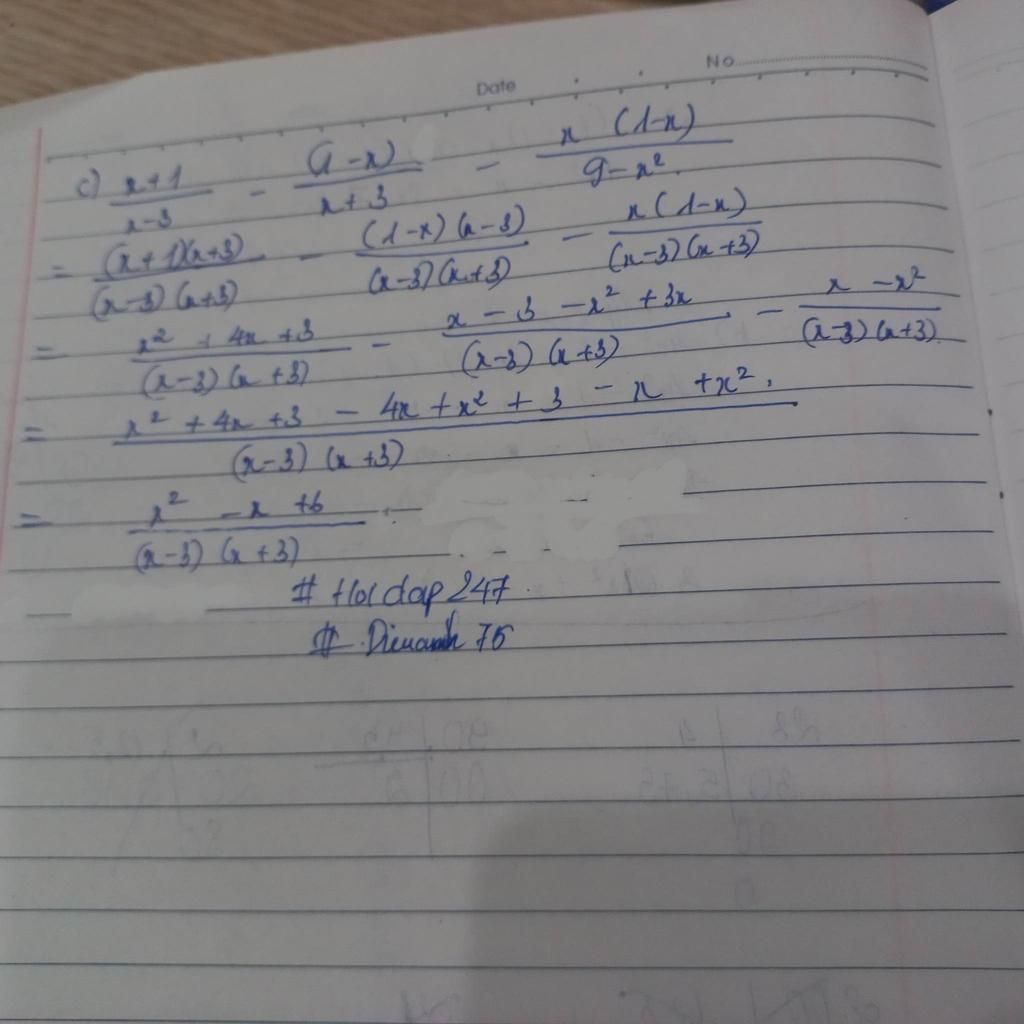 Date No
c) (x+1)/(x-3) - (1-x)/(x+3) - x(1-x)/(9-x²)
= (x+1)(x+3)/(x-3)(x+3) - (1-x)(x-3)/(x-3)(x+3) - x(1-x)/(x-3)(x+3)
= x² + 4x + 3/(x-3)(x+3) - x - 3 - x² + 3x/(x-3)(x+3) - x - x²/(x-3)(x+3)
= x² + 4x + 3 - 4x + x² + 3 - x + x²/(x-3)(x+3)
= x² - x + 6/(x-3)(x+3)
# Hoidap 247
# Dieuanh 75